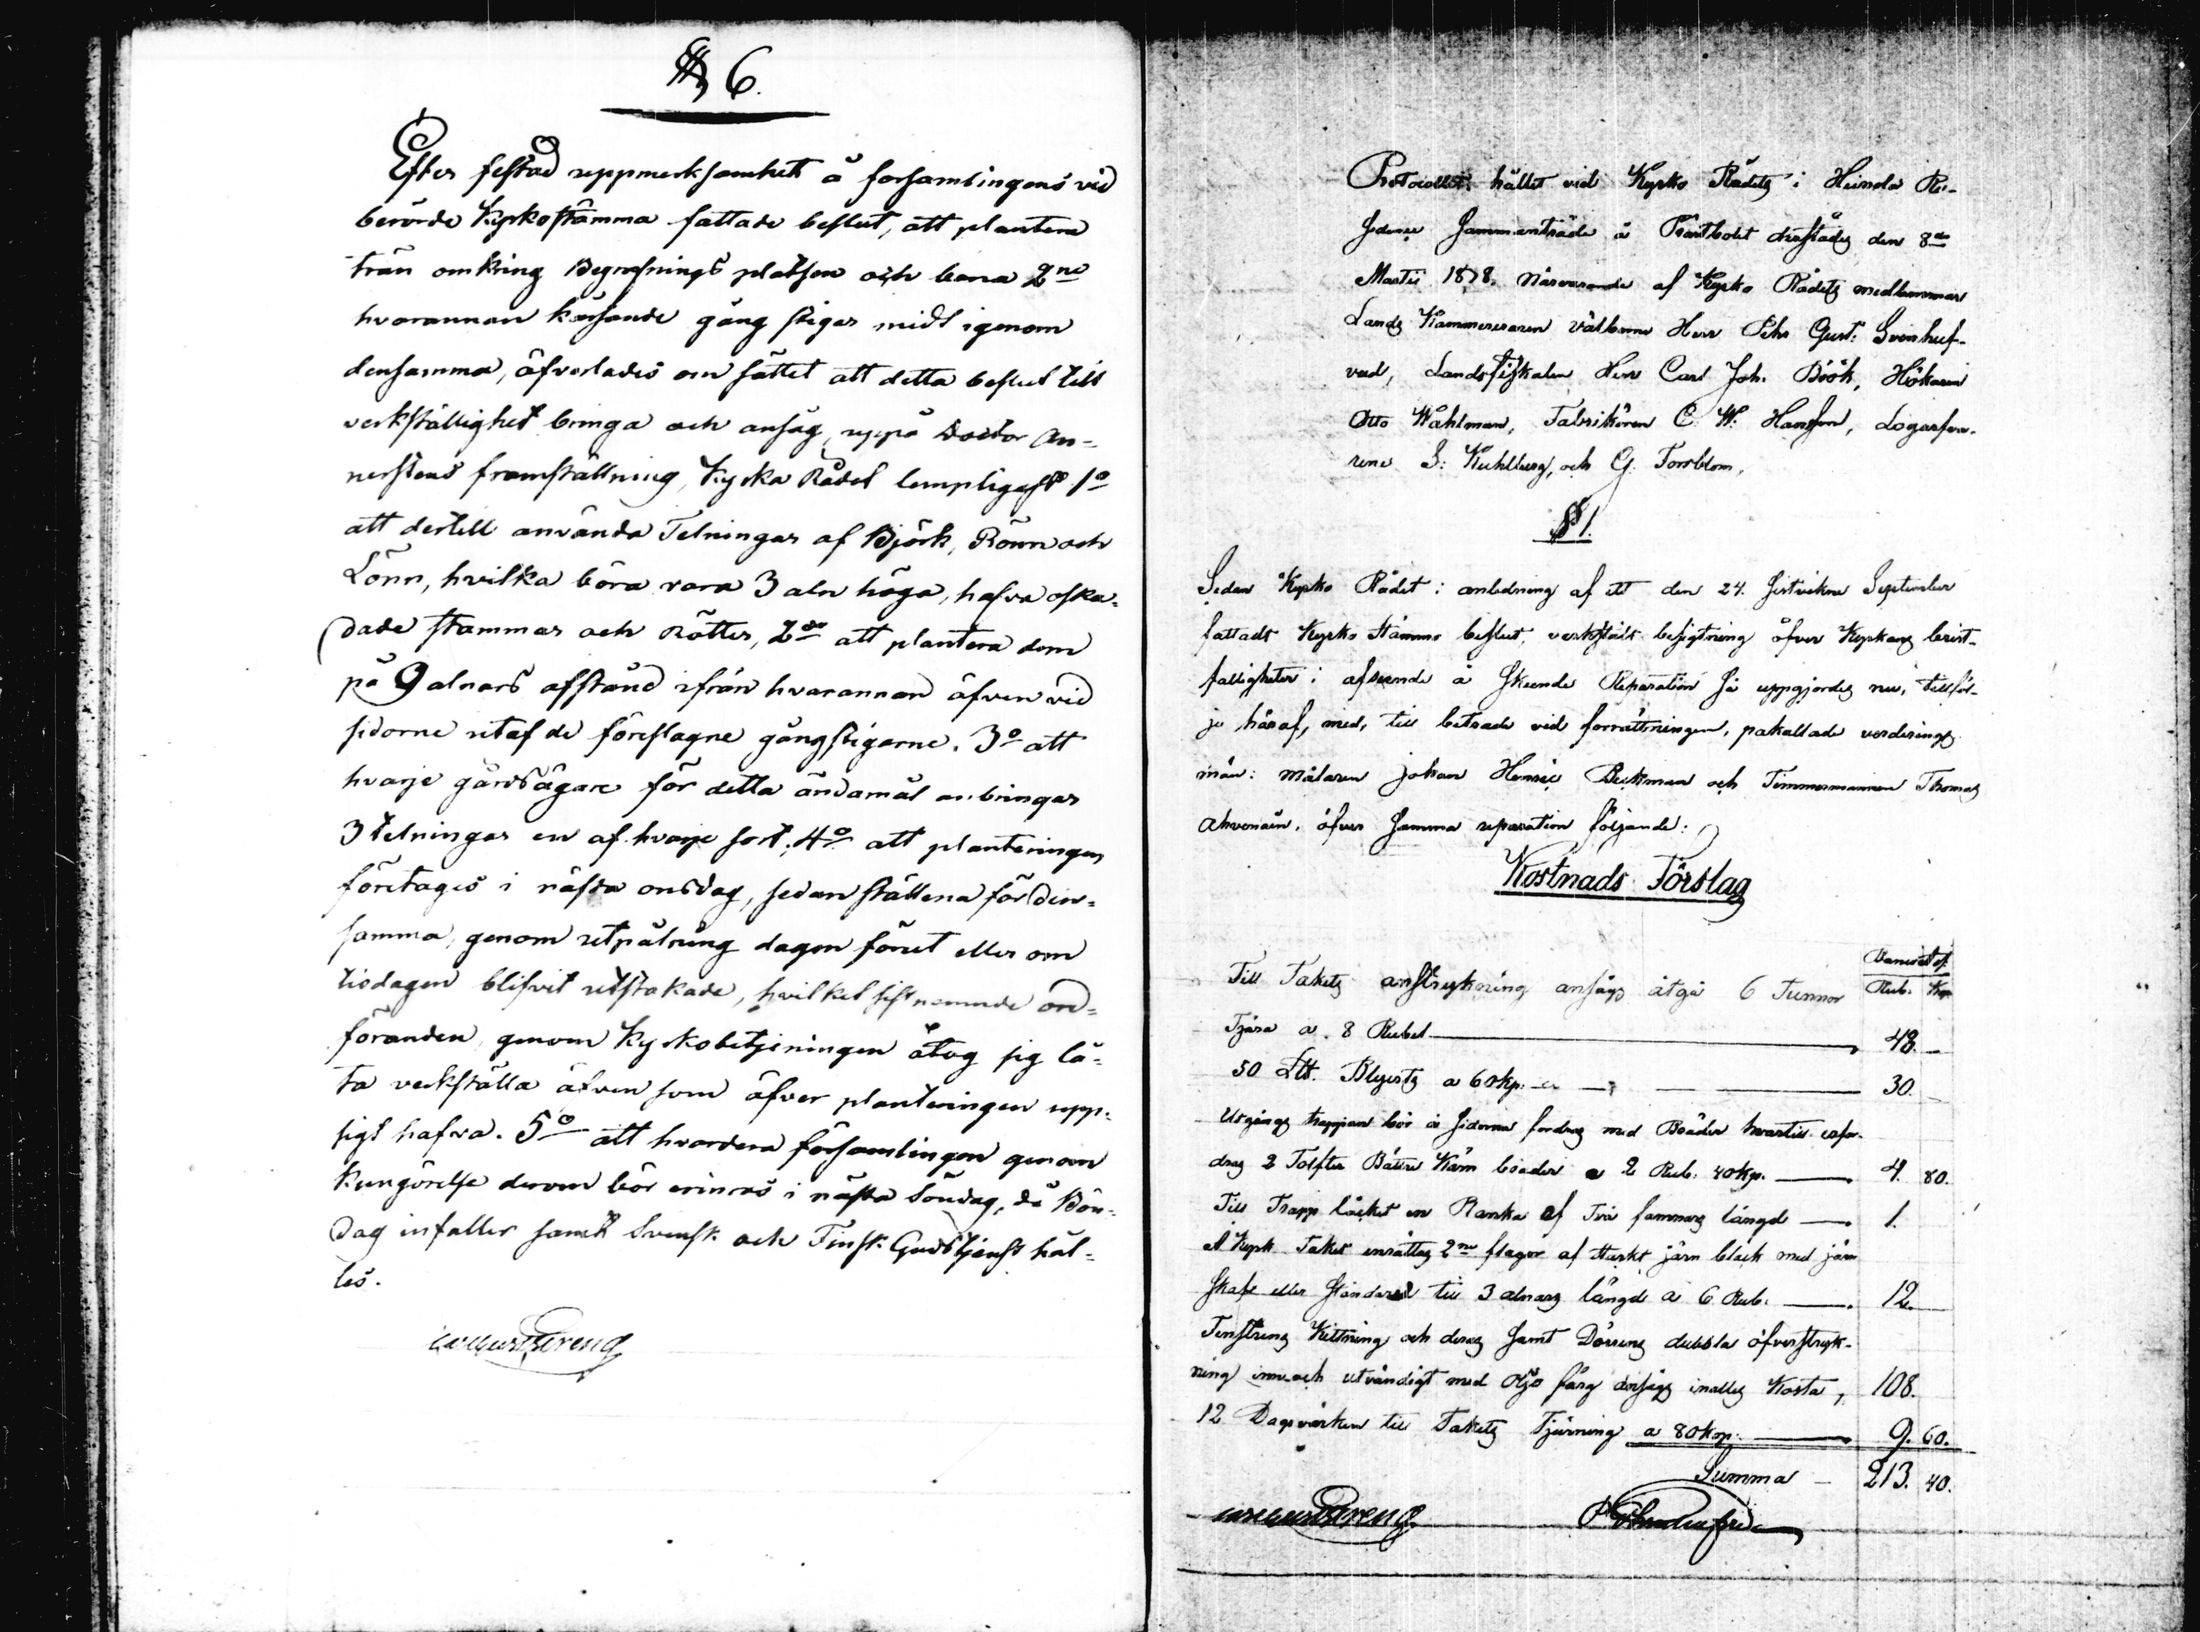 § 6.
Efter festad uppmerksamhet å församlingens vid
berörde Kyrkostämma fattade beslut, att plantera
trän omkring Begrafnings platsen och bana 2ne
hvarannan korsande gång stigar midt igenom
densamma, öfverlades om sättet att detta beslut till
verkställighet bringa och ansåg, uppå Doctor An-
nerstens framställning, Kyrko Rådet lempligast 1o
att dertill använda Telningar af Björk, Rönn och
Lönn, hvilka böra vara 3 aln höga, hafva oska-
dade stammar och Rötter, 2do att plantera dem
på 9 alnars afstånd ifrån hvarannan äfven vid
sidorne utaf de föreslagne gångstigarne. 3o att
hvarje gårdsägare för detta ändamål anbringar
3 telningar en af hvarje sort; 4o att planteringen
företages i nästa onsdag, sedan ställena för den-
samma, genom utpålning dagen förut eller om
tisdagen blifvit utstakade, hvilket sistnemnde ord-
föranden genom Kyrkobetjeningen åtog sig lå-
ta verkställa äfven som öfver planteringen upp-
sigt hafva. 5o att hvardera församlingen genom
Kungörelse derom bör erinras i nästa Söndag, då Bön-
dag infaller samt Svensk och Finsk Gudstjenst hål-
les.
Protocollet hållet vid Kyrko Rådets i Heinola Re-
sidence Sammanträde å Prästbolet derstädes den 8de
Martii 1828. Närvarande af Kyrko Rådets medlemmar
Lands Kammereraren Välborne Herr Pehr Gust: Svinhuf-
vud, Landsfiskalen Herr Carl Joh. Böök, Hökaren
Otto Wahlman, Fabrikören C. W: Hansson, Logarfva-
rene S: Kuhlberg, och G. Forsblom.
§ 1.
Sedan Kyrko Rådet i anledning af ett den 24. sistvekne September
fattadt Kyrko Stämmo beslut, verkstält besigtning öfver Kyrkans brist-
fälligheter i afseende å skeende Reparation så uppgjordes nu, tillföl-
je häraf, med, till beträde vid förrättningen, påkallade värderings
män: Målaren Johan Henric Beckman och Timmermannen Thomas
Ahvenain, öfver samma reparation följande:
Kostnads Förslag
Rub. Kp
Till Takets anstrykning ansågs åtgå 6 Tunnor
Tjära a 8 Rubel 48. –
50 Lb. Blyerts a 60 kp. 30.
Utgångs trappans bör å sidorne fordras med Bräder hvartill erfor-
dras 2 Tolfter Bättre Kärn bräder a 2 Rub. 40 kp. 4. 80.
Till Trapp låcket en Planka af Två famnars längd 1.
A Kyrk Taket inrättas 2ne flagor af starkt järn bläck med järn
skaft eller ständare till 3 alnars längd à 6 Rub. 12.
Fenstrens Kittning och deras samt Dörrens dubbla öfverstryk-
ning inn och utvändigt med Olje färg ansågs inalles Kosta, 108.
12 Dagsvärken till Takets Tjärning a 80 kop. 9. 60.
Summa – 213. 40.